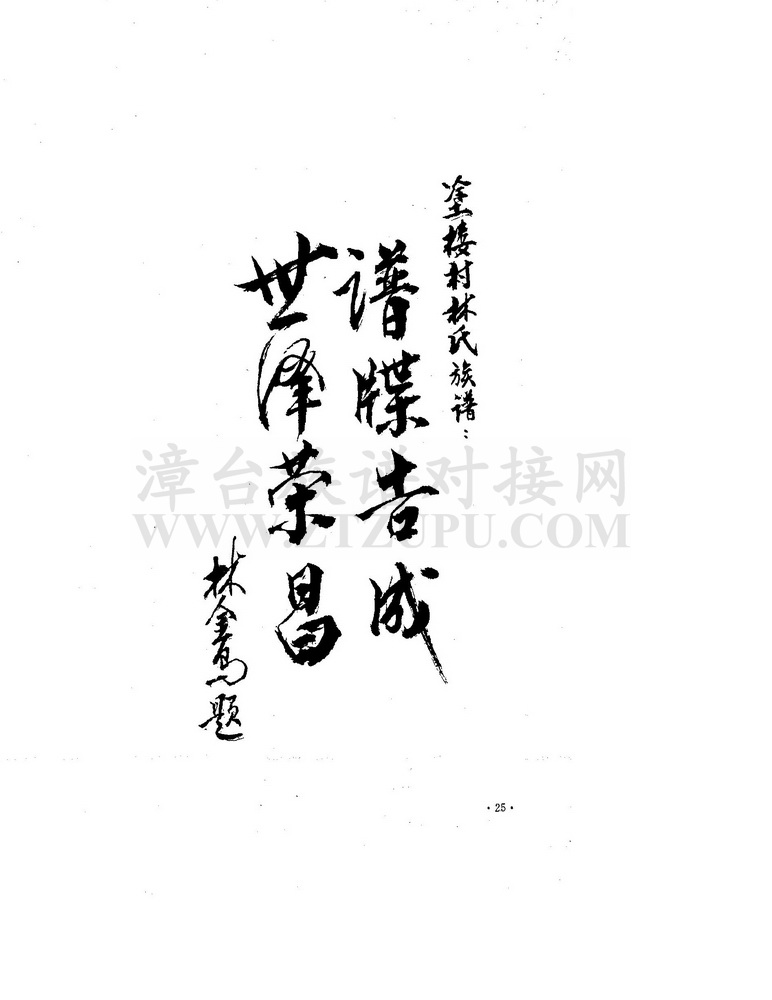 塗楼村林氏族谱：
谱牒告成
世泽荣昌
林金鳥题
漳台族谱对接网
WWW.ZTZUPU.COM
·25·